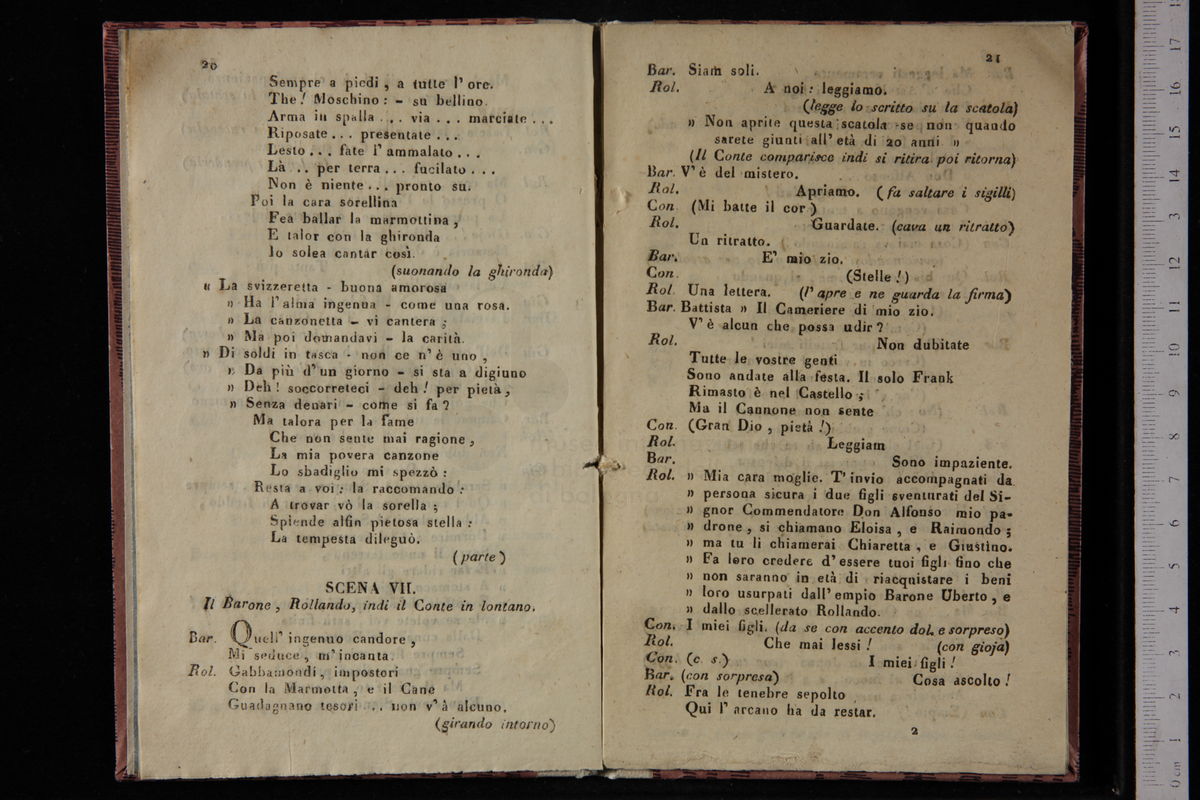 20
Sempre a piedi , a tutte l' ore.
The ! Moschino : - su bellino.
Arma in spalla . . . via . . . marciate . . .
Riposate . . . presentate . . .
Lesto . . . fate l' ammalato . . .
Là . . per terra . . . fucilato . . .
Non è niente . . . pronto su.
Poi la cara sorellina
Fea ballar la marmottina ,
E talor con la ghironda
Io solea cantar così.
(suonando la ghironda)
« La svizzeretta - buona amorosa
» Ha l' alma ingenua - come una rosa.
» La canzonetta - vi cantera ;
» Ma poi domandavi - la carità.
» Di soldi in tasca - non ce n' è uno ,
» Da più d' un giorno - si sta a digiuno
» Deh ! soccorreteci - deh ! per pietà ,
» Senza denari - come si fa ?
Ma talora per la fame
Che non sente mai ragione ,
La mia povera canzone
Lo sbadiglio mi spezzò :
Resta a voi ; la raccomando :
A trovar vò la sorella ;
Splende alfin pietosa stella :
La tempesta dileguò.
(parte)
SCENA VII.
Il Barone , Rollando, indi il Conte in lontano.
Bar. Quell' ingenuo candore ,
Mi seduce , m' incanta.
Rol. Gabbamondi , impostori
Con la Marmotta , e il Cane
Guadagnano tesori . . . non v' à alcuno.
(girando intorno)
21
Bar. Siam soli.
Rol. A noi : leggiamo.
(legge lo scritto su la scatola)
» Non aprite questa scatola se non quando
sarete giunti all' età di 20 anni »
(Il Conte comparisce indi si ritira poi ritorna)
Bar. V' è del mistero.
Rol. Apriamo. ( fa saltare i sigilli)
Con. (Mi batte il cor )
Rol. Guardate. (cava un ritratto)
Un ritratto.
Bar. E' mio zio.
Con. (Stelle !)
Rol. Una lettera. (l' apre e ne guarda la firma)
Bar. Battista » Il Cameriere di mio zio.
V' è alcun che possa udir ?
Rol. Non dubitate
Tutte le vostre genti
Sono andate alla festa. Il solo Frank
Rimasto è nel Castello ;
Ma il Cannone non sente
Con. (Gran Dio , pietà !)
Rol. Leggiam
Bar. Sono impaziente.
Rol. » Mia cara moglie. T' invio accompagnati da
» persona sicura i due figli sventurati del Si-
» gnor Commendatore Don Alfonso mio pa-
» drone , si chiamano Eloisa , e Raimondo ;
» ma tu li chiamerai Chiaretta , e Giustino.
» Fa loro credere d' essere tuoi figli fino che
» non saranno in età di riacquistare i beni
» loro usurpati dall' empio Barone Uberto , e
» dallo scellerato Rollando.
Con. I miei figli. (da se con accento dol. e sorpreso)
Rol. Che mai lessi ! (con gioja)
Con. (c. s.) I miei figli !
Bar. (con sorpresa) Cosa ascolto !
Rol. Fra le tenebre sepolto
Qui l' arcano ha da restar.
2